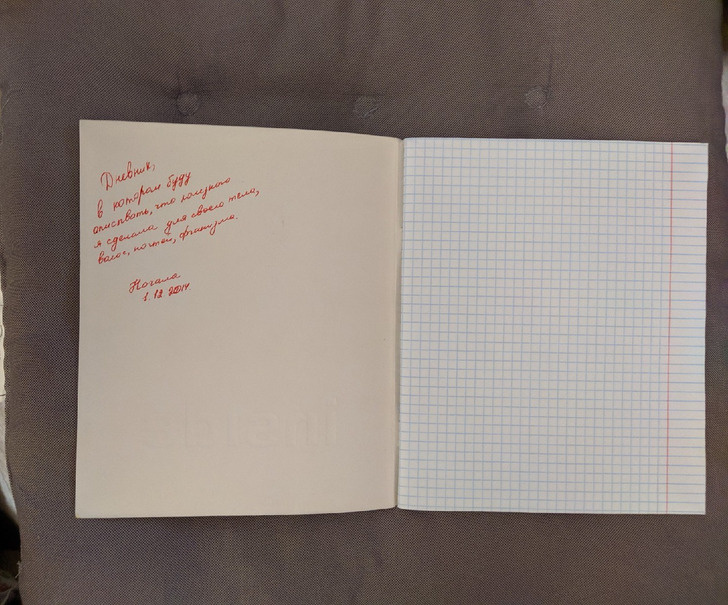 Дневник,
в котором буду
описывать, что полезного
я сделала для своего тела,
волос, ногтей, организма.
Начала
1.12.2014